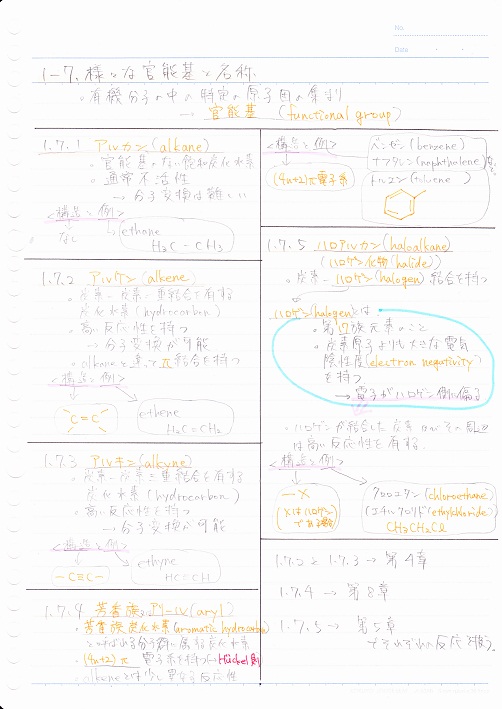 No.
Date
1-7. 様々な官能基と名称
・有機分子の中の特定の原子団の集まり
→ 官能基 (functional group)
1.7.1 アルカン(alkane)
・官能基のない飽和炭化水素
・通常不活性
→ 分子変換は難しい
<構造と例>
なし
ethane
H3C-CH3
1.7.2 アルケン(alkene)
・炭素-炭素二重結合を有する
炭化水素(hydrocarbon)
・高い反応性を持つ
→ 分子変換が可能
・alkaneと違ってπ結合を持つ
<構造と例>
C=C
ethene
H2C=CH2
1.7.3 アルキン(alkyne)
・炭素-炭素三重結合を有する
炭化水素(hydrocarbon)
・高い反応性を持つ
→分子変換が可能
<構造と例>
-C≡C-
ethyne
HC≡CH
1.7.4 芳香族、アリール(aryl)
・芳香族炭化水素(aromatic hydrocarbon)
とよばれる分子群に属する炭化水素
・(4n+2)π 電子系を持つ(→Hückel則)
・alkeneとは少し異なる反応性
<構造と例>
(4n+2)π電子系
ベンゼン(benzene)
ナフタレン(naphthalene)
トルエン(toluene)
など
1.7.5 ハロアルカン(haloalkane)
(ハロゲン化物(halide))
・炭素-ハロゲン(halogen)結合を持つ
ハロゲン(halogen)とは
・第17族元素のこと
・炭素原子よりも大きな電気
陰性度(electron negativity)
を持つ
→電子がハロゲン側に偏る
・ハロゲンが結合した炭素およびその周辺
は高い反応性を有する
<構造と例>
-X
(Xはハロゲン
である場合)
クロロエタン(chloroethane)
(エチルクロリド(ethylchloride))
CH3CH2Cl
1.7.2と1.7.3→第4章
1.7.4 → 第8章
1.7.5 → 第5章
でそれぞれの反応を扱う。